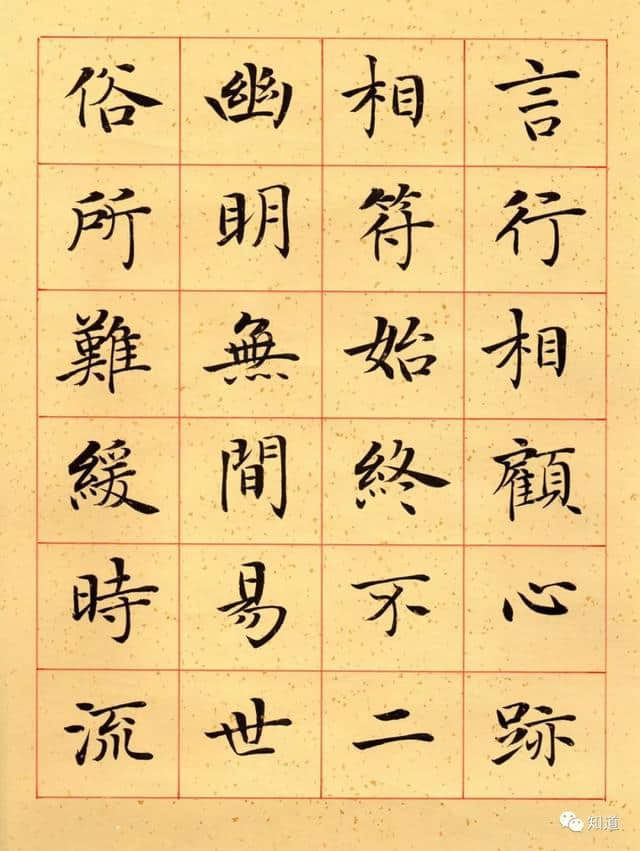 言行相顧心跡
相符始終不二
幽明無間易世
俗所難緩時流
知道